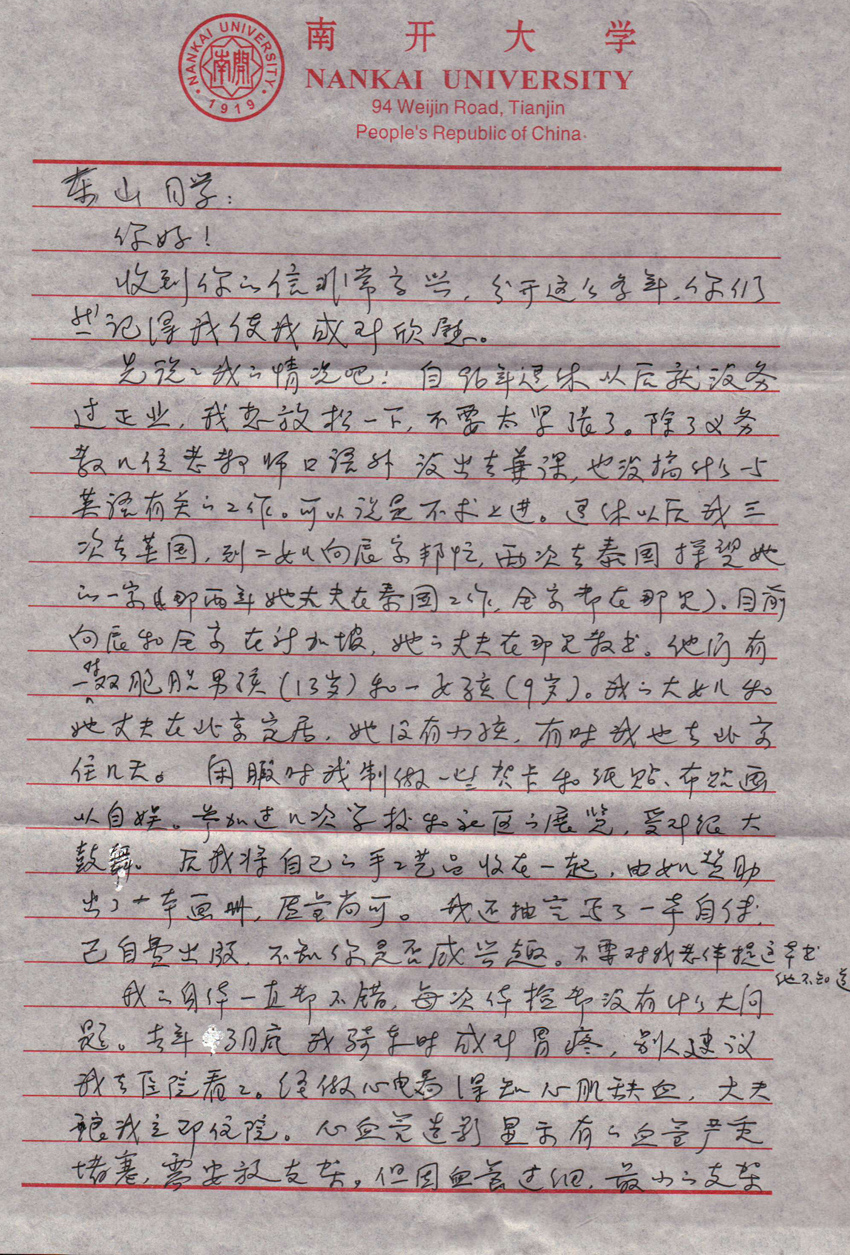 南开大学
NANKAI UNIVERSITY
94 Weijin Road, Tianjin
People's Republic of China
NANKAI UNIVERSITY
南開
1919
东山同学：
你好！
收到你的信非常高兴，分开这么多年，你们
然记得我使我感到欣慰。
先说说我的情况吧：自96年退休以后就没务
过正业，我想放松一下，不要太紧张了。除了义务
教几位老教师口语外没出去兼课，也没搞什么与
英语有关的工作。可以说是不求上进。退休以后我三
次去美国，到二女儿向辰家帮忙，两次去泰国探望她
的一家（那两年她丈夫在泰国工作，全家都在那儿）。目前
向辰和全家在新加坡，她的丈夫在那儿教书。他们有
一对双胞胎男孩（13岁）和一女孩（9岁）。我的大女儿和
她丈夫在北京定居，她没有小孩，有时我也去北京
住几天。闲暇时我制做一些贺卡和纸贴、布贴画
以自娱。参加过几次学校和社区的展览，受到很大
鼓舞。后我将自己的手工艺品收在一起，由女儿赞助
出了一本画册，质量尚可。我还抽空写了一本自传，
已自费出版，不知你是否感兴趣。不要对我老伴提这本书
他不知道
我的身体一直都不错，每次体检都没有什么大问
题。去年3月底我骑车时感到胃疼，别人建议
我去医院看看。经做心电图得知心肌缺血，大夫
让我立即住院。心血管造影显示有的血管严重
堵塞，需安放支架。但因血管过细，最小的支架